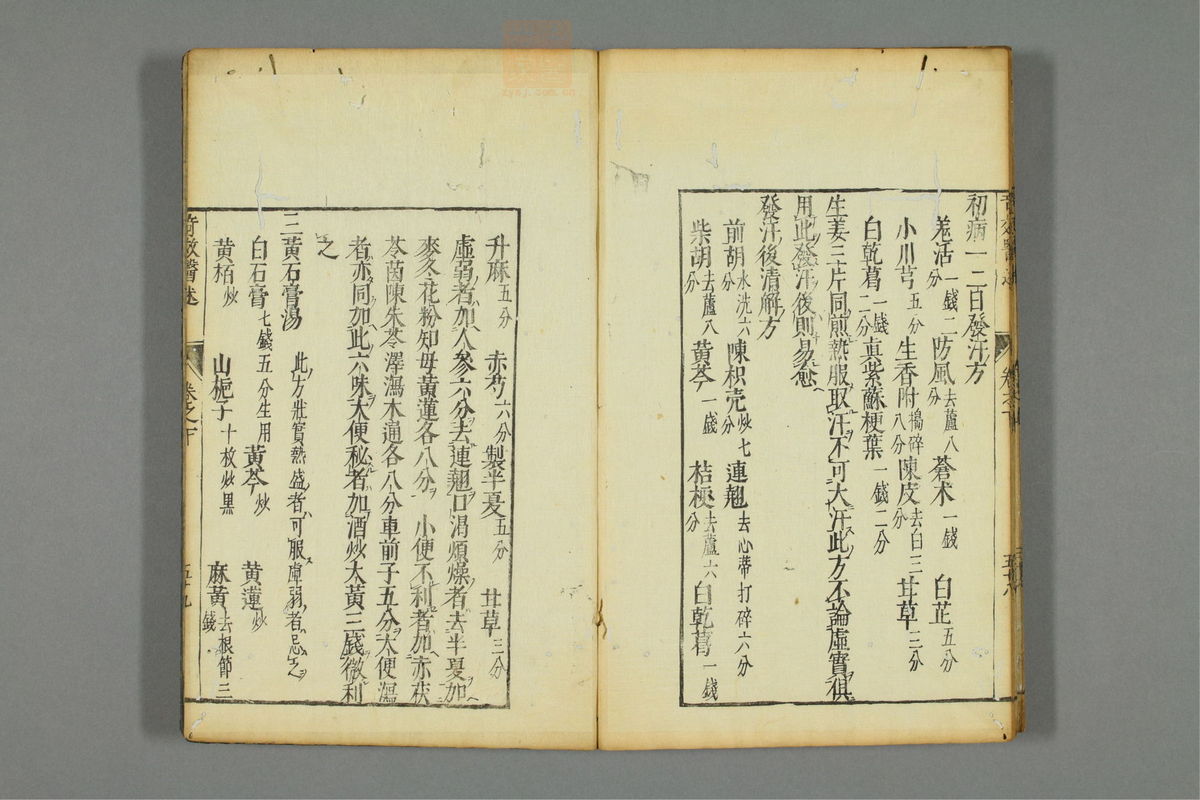 初病一二日發汗方
羗活一錢二分 防風去蘆八分 蒼术一錢 白芷五分
小川芎五分 生香附搗碎八分 陳皮去白三分 甘草三分
白乾葛一錢二分 真紫蘇梗葉一錢二分
生姜三片同煎熱服取汗不可大汗此方不論虛實俱
用此發汗後則易愈
發汗後清解方
前胡水洗六分 陳枳壳炒七分 連翹去心蒂打碎六分
柴胡去蘆八分 黄芩一錢 桔梗去蘆六分 白乾葛一錢
卷之下
升麻五分 赤芍六分 製半夏五分 甘草三分
虛弱者加人參六分去連翹口渴煩燥者去半夏加
麥冬花粉知母黄連各八分 小便不利者加赤茯
苓茵陳朱苓澤瀉木通各八分車前子五分大便瀉
者亦同加此六味大便秘者加酒炒大黄三錢微利
之
三黄石膏湯 此方壯實熱盛者可服虛弱者忌之
白石膏七錢五分生用 黄芩炒 黄連炒
黄栢炒 山梔子十枚炒黑 麻黄去根節三錢
奇效醫述 卷之下 五十九
zysj.com.cn